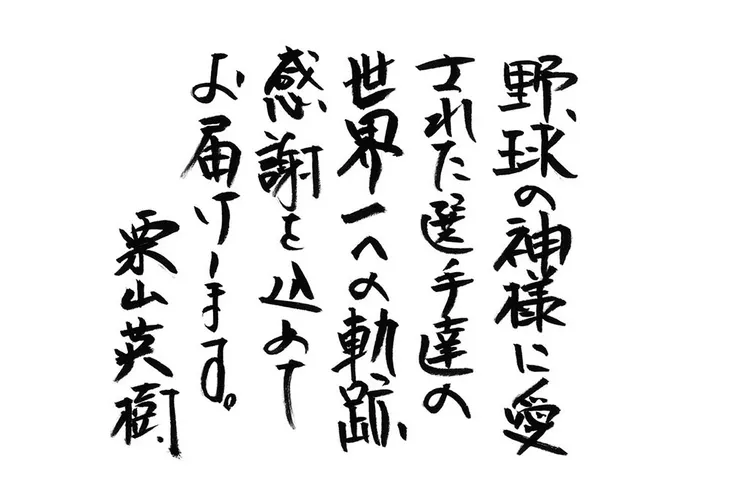 野球の神様に愛
された選手達の
世界一への軌跡、
感謝を込めて
お届けします。
栗山英樹